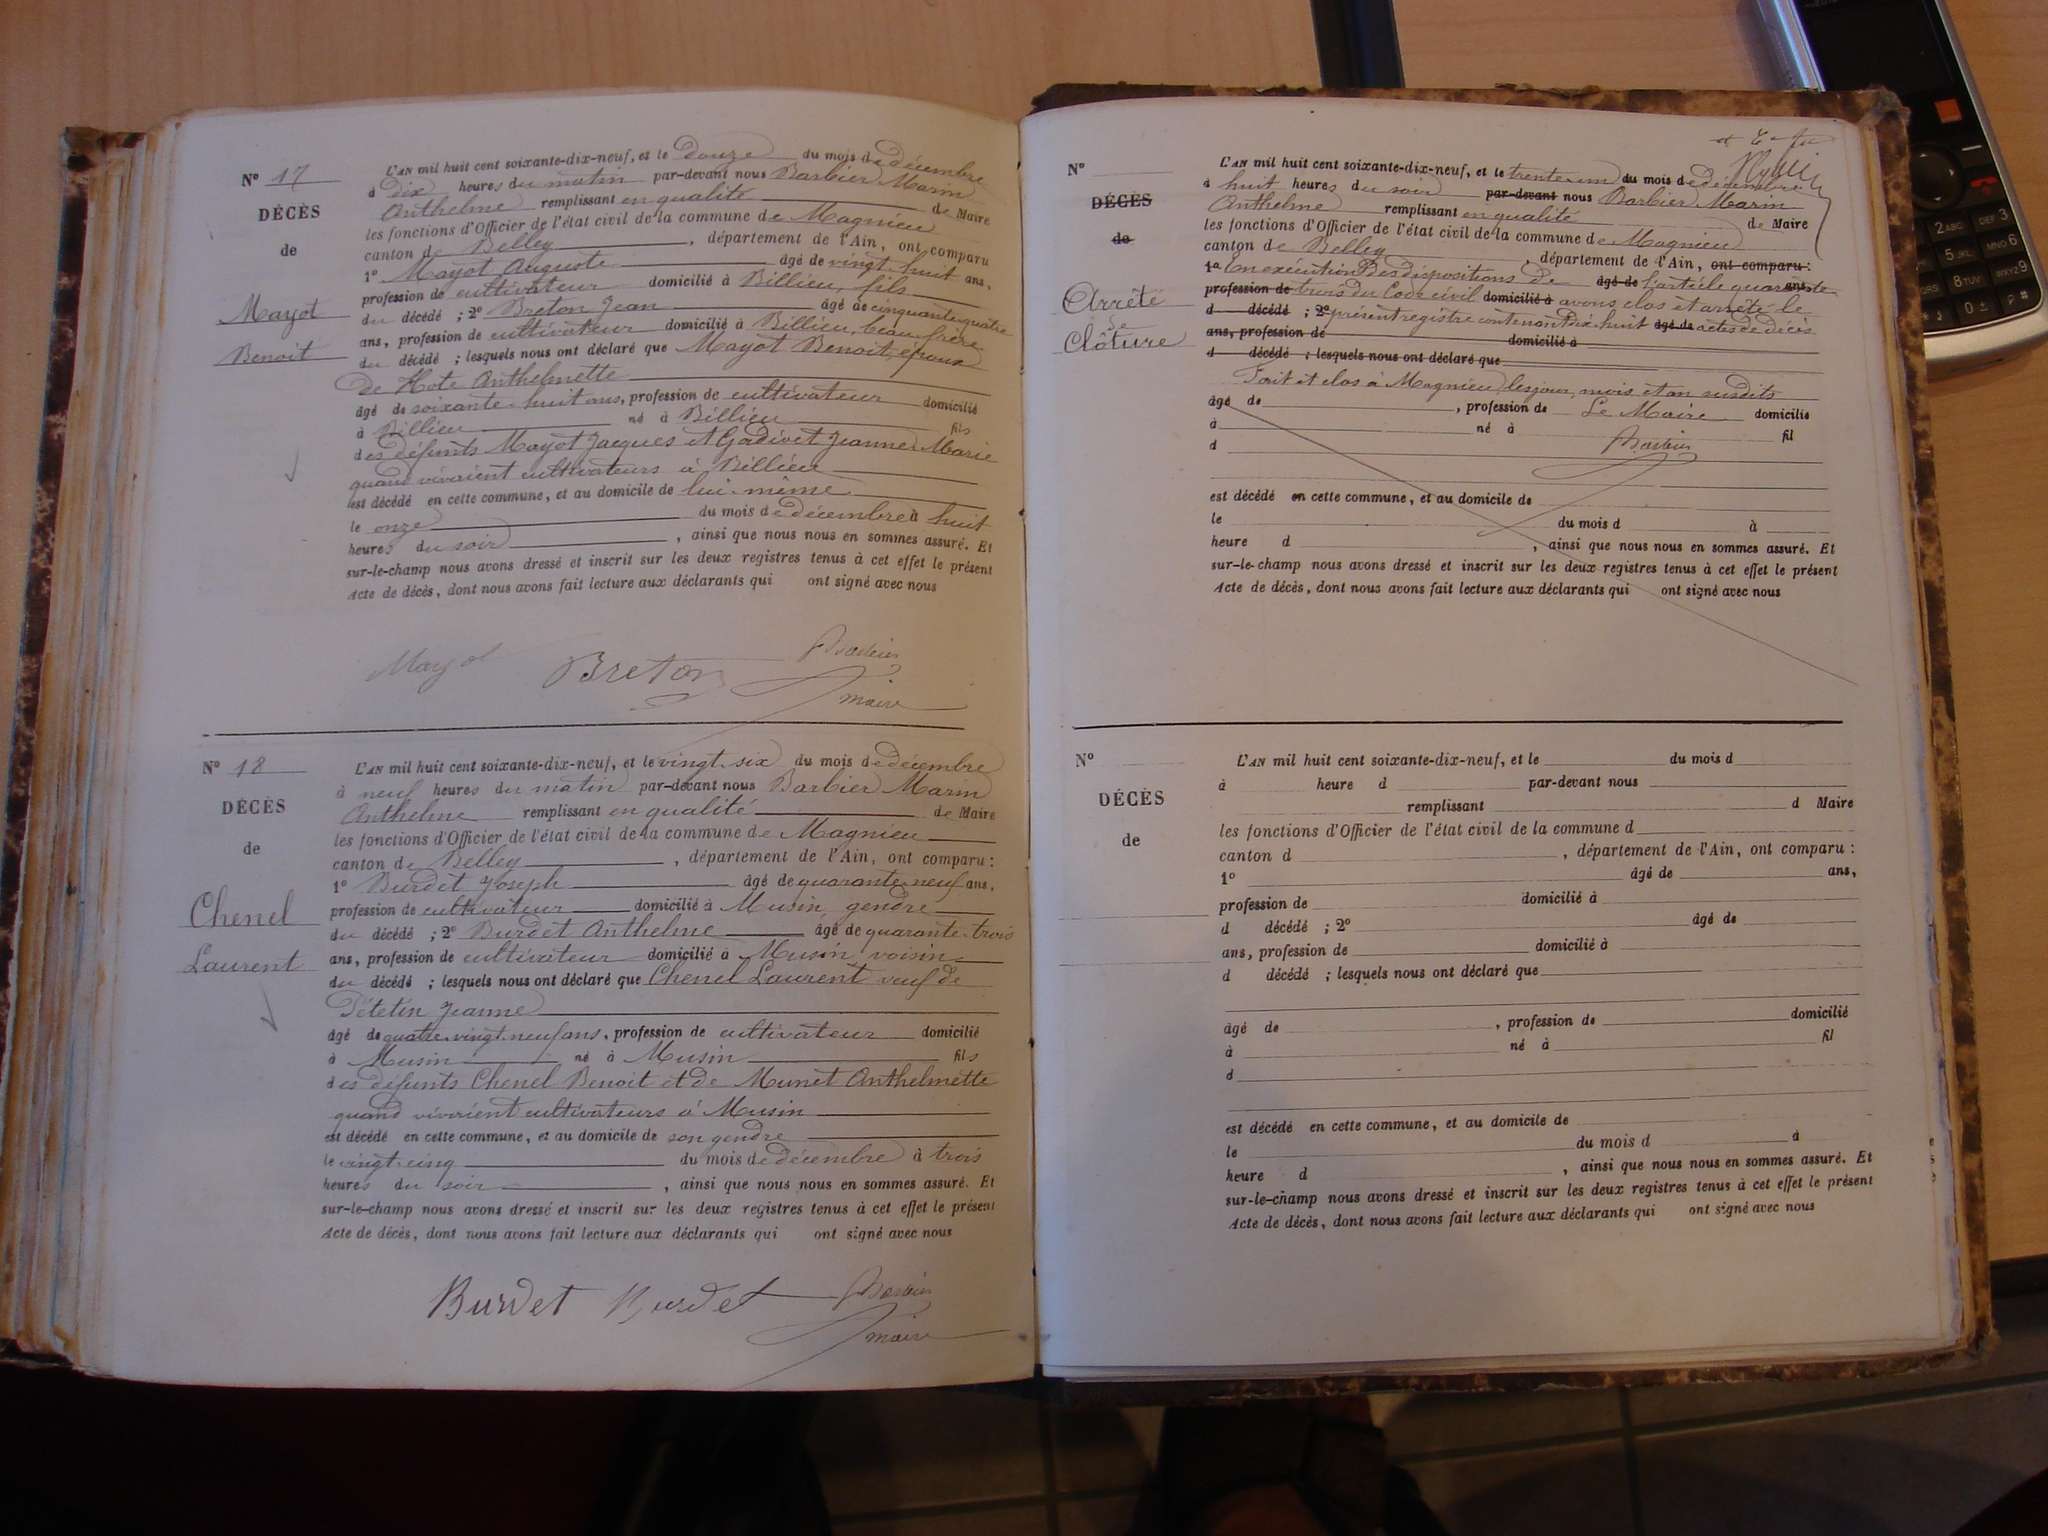 N° 17
DÉCÈS
de
Mayot
Benoit
L'AN mil huit cent soixante-dix-neuf, et le douze du mois de décembre
à dix heures du matin par-devant nous Barbier Marin
Anthelme remplissant en qualité de Maire
les fonctions d'Officier de l'état civil de la commune de Magnieu
canton de Belley, département de l'Ain, ont comparu
1° Mayot Auguste âgé de vingt-huit ans,
profession de cultivateur domicilié à Billieu, fils
du décédé ; 2° Breton Jean âgé de cinquante-quatre
ans, profession de cultivateur domicilié à Billieu, beau-frère
du décédé ; lesquels nous ont déclaré que Mayot Benoit, époux
de Hote Anthelmette
âgé de soixante-huit ans, profession de cultivateur domicilié
à Billieu né à Billieu fils
des défunts Mayot Jacques et Gadivet Jeanne-Marie
quand vivaient cultivateurs à Billieu
est décédé en cette commune, et au domicile de lui-même
le onze du mois de décembre à huit
heures du soir, ainsi que nous nous en sommes assuré. Et
sur-le-champ nous avons dressé et inscrit sur les deux registres tenus à cet effet le présent
Acte de décès, dont nous avons fait lecture aux déclarants qui ont signé avec nous
Mayot Breton Barbier
maire
N° 18
DÉCÈS
de
Chenel
Laurent
L'AN mil huit cent soixante-dix-neuf, et le vingt-six du mois de décembre
à neuf heures du matin par-devant nous Barbier Marin
Anthelme remplissant en qualité de Maire
les fonctions d'Officier de l'état civil de la commune de Magnieu
canton de Belley, département de l'Ain, ont comparu :
1° Burdet Joseph âgé de quarante-neuf ans,
profession de cultivateur domicilié à Musin, gendre
du décédé ; 2° Burdet Anthelme âgé de quarante-trois
ans, profession de cultivateur domicilié à Musin, voisin
du décédé ; lesquels nous ont déclaré que Chenel Laurent veuf de
Tétetin Jeanne
âgé de quatre-vingt-neuf ans, profession de cultivateur domicilié
à Musin né à Musin fils
des défunts Chenel Benoit et de Munet Anthelmette
quand vivaient cultivateurs à Musin
est décédé en cette commune, et au domicile de son gendre
le vingt-cinq du mois de décembre à trois
heures du soir, ainsi que nous nous en sommes assuré. Et
sur-le-champ nous avons dressé et inscrit sur les deux registres tenus à cet effet le présent
Acte de décès, dont nous avons fait lecture aux déclarants qui ont signé avec nous
Burdet Burdet Barbier
maire
N°
DÉCÈS
de
Arrêté
de
Clôture
L'AN mil huit cent soixante-dix-neuf, et le trente-un du mois de décembre
à huit heures du soir par-devant nous Barbier Marin
Anthelme remplissant en qualité de Maire
les fonctions d'Officier de l'état civil de la commune de Magnieu
canton de Belley, département de l'Ain, ont comparu :
1° En exécution des dispositions de âgé de l'article quarante ans,
profession de trois du Code civil domicilié à avons clos et arrêté le
d décédé ; 2° présent registre contenant dix-huit âgé de actes de décès
ans, profession de domicilié à
d décédé ; lesquels nous ont déclaré que
Fait et clos à Magnieu, les jour, mois et an susdits
âgé de , profession de Le Maire domicilié
à né à Barbier fil
d
est décédé en cette commune, et au domicile de
le du mois d à
heure d , ainsi que nous nous en sommes assuré. Et
sur-le-champ nous avons dressé et inscrit sur les deux registres tenus à cet effet le présent
Acte de décès, dont nous avons fait lecture aux déclarants qui ont signé avec nous
N°
DÉCÈS
de
L'AN mil huit cent soixante-dix-neuf, et le du mois d
à heure d par-devant nous
remplissant d Maire
les fonctions d'Officier de l'état civil de la commune d
canton d , département de l'Ain, ont comparu :
1° âgé de ans,
profession de domicilié à
d décédé ; 2° âgé de
ans, profession de domicilié à
d décédé ; lesquels nous ont déclaré que
âgé de , profession de domicilié
à né à fil
d
est décédé en cette commune, et au domicile de
le du mois d à
heure d , ainsi que nous nous en sommes assuré. Et
sur-le-champ nous avons dressé et inscrit sur les deux registres tenus à cet effet le présent
Acte de décès, dont nous avons fait lecture aux déclarants qui ont signé avec nous